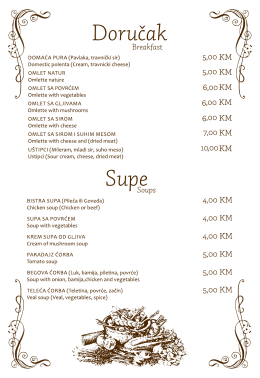 Doručak
Breakfast
DOMAĆA PURA (Pavlaka, travnički sir) 5,00 KM
Domestic polenta (Cream, travnicki cheese)
OMLET NATUR 5,00 KM
Omlette nature
OMLET SA POVRĆEM 6,00 KM
Omlette with vegetables
OMLET SA GLJIVAMA 6,00 KM
Omlette with mushrooms
OMLET SA SIROM 6,00 KM
Omlette with cheese
OMLET SA SIROM I SUHIM MESOM 7,00 KM
Omlette with cheese and (dried meat)
UŠTIPCI (Mileram, mladi sir, suho meso) 10,00 KM
Ustipci (Sour cream, cheese, dried meat)
Supe
Soups
BISTRA SUPA (Pileća ili Goveđa) 4,00 KM
Chicken soup (Chicken or beef)
SUPA SA POVRĆEM 4,00 KM
Soup with vegetables
KREM SUPA OD GLJIVA 4,00 KM
Cream of mushroom soup
PARADAJZ ČORBA 5,00 KM
Tomato soup
BEGOVA ČORBA (Luk, bamija, piletina, povrće) 5,00 KM
Soup with onion, bamija,chicken and vegetables
TELEĆA ČORBA (Teletina, povrće, začin) 5,00 KM
Veal soup (Veal, vegetables, spice)